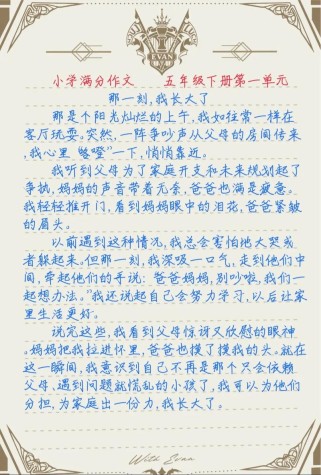 EVAN
小学满分作文 五年级下册第一单元
那一刻,我长大了
那是个阳光灿烂的上午,我如往常一样在
客厅玩耍。突然,一阵争吵声从父母的房间传来
,我心里“咯噔”一下,悄悄靠近。
我听到父母为了家庭开支和未来规划起了
争执,妈妈的声音带着无奈,爸爸也满是疲意。
我轻轻推开门,看到妈妈眼中的泪花,爸爸紧皱
的眉头。
以前遇到这种情况,我总会害怕地大哭或
者躲起来。但那一刻,我深吸一口气,走到他们中
间,牵起他们的手说:“爸爸妈妈,别吵啦,我们一
起想办法。”我还说起自己会努力学习,以后让家
里生活更好。
说完这些,我看到父母惊讶又欣慰的眼神
。妈妈把我拉进怀里,爸爸也摸了摸我的头。就在
这一瞬间,我意识到自己不再是那个只会依赖
父母、遇到问题就慌乱的小孩了,我可以为他们
分担,为家庭出一份力,我长大了。
With Evan